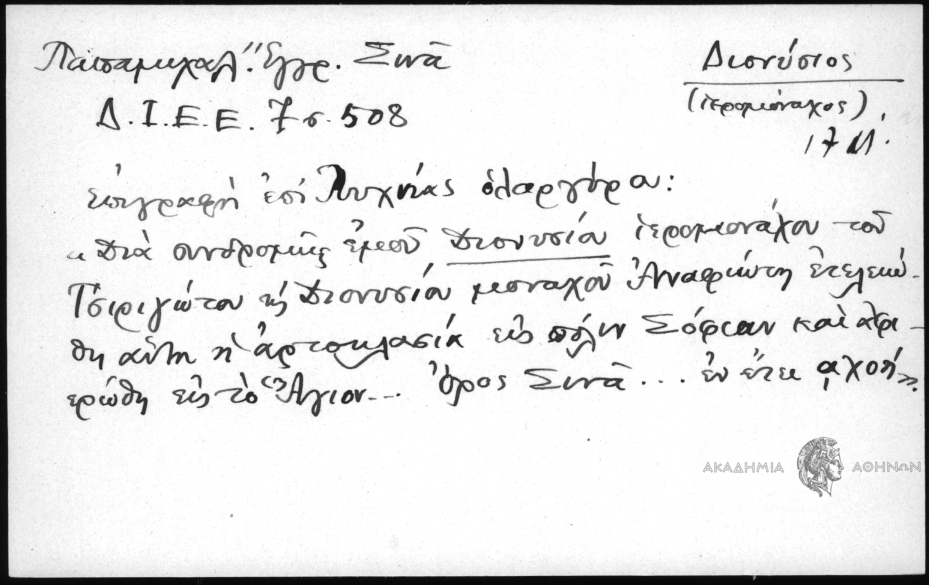 Παπαμιχαλ. Ἔγγρ. Σινᾶ
Δ.Ι.Ε.Ε. 7 σ. 508
Διονύσιος
(ἱερομόναχος)
17
ἐπιγραφὴ ἐπὶ Λυχνίας ὁλαργύρα:
« Διὰ συνδρομῆς ἐμοῦ Διονυσίου ἱερομονάχου τοῦ
Τσιριγώτου κὴ Διονυσίου μοναχοῦ Ἀναφιώτη ἐτελειώ-
θη αὕτη ἡ ἀρτοκλασία εἰς πόλιν Σόφιαν καὶ ἀφι-
ερώθη εἰς τὸ Ἅγιον... Ὄρος Σινᾶ... ἐν ἔτει ͵αχοή».
ΑΚΑΔΗΜΙΑ ΑΘΗΝΩΝ